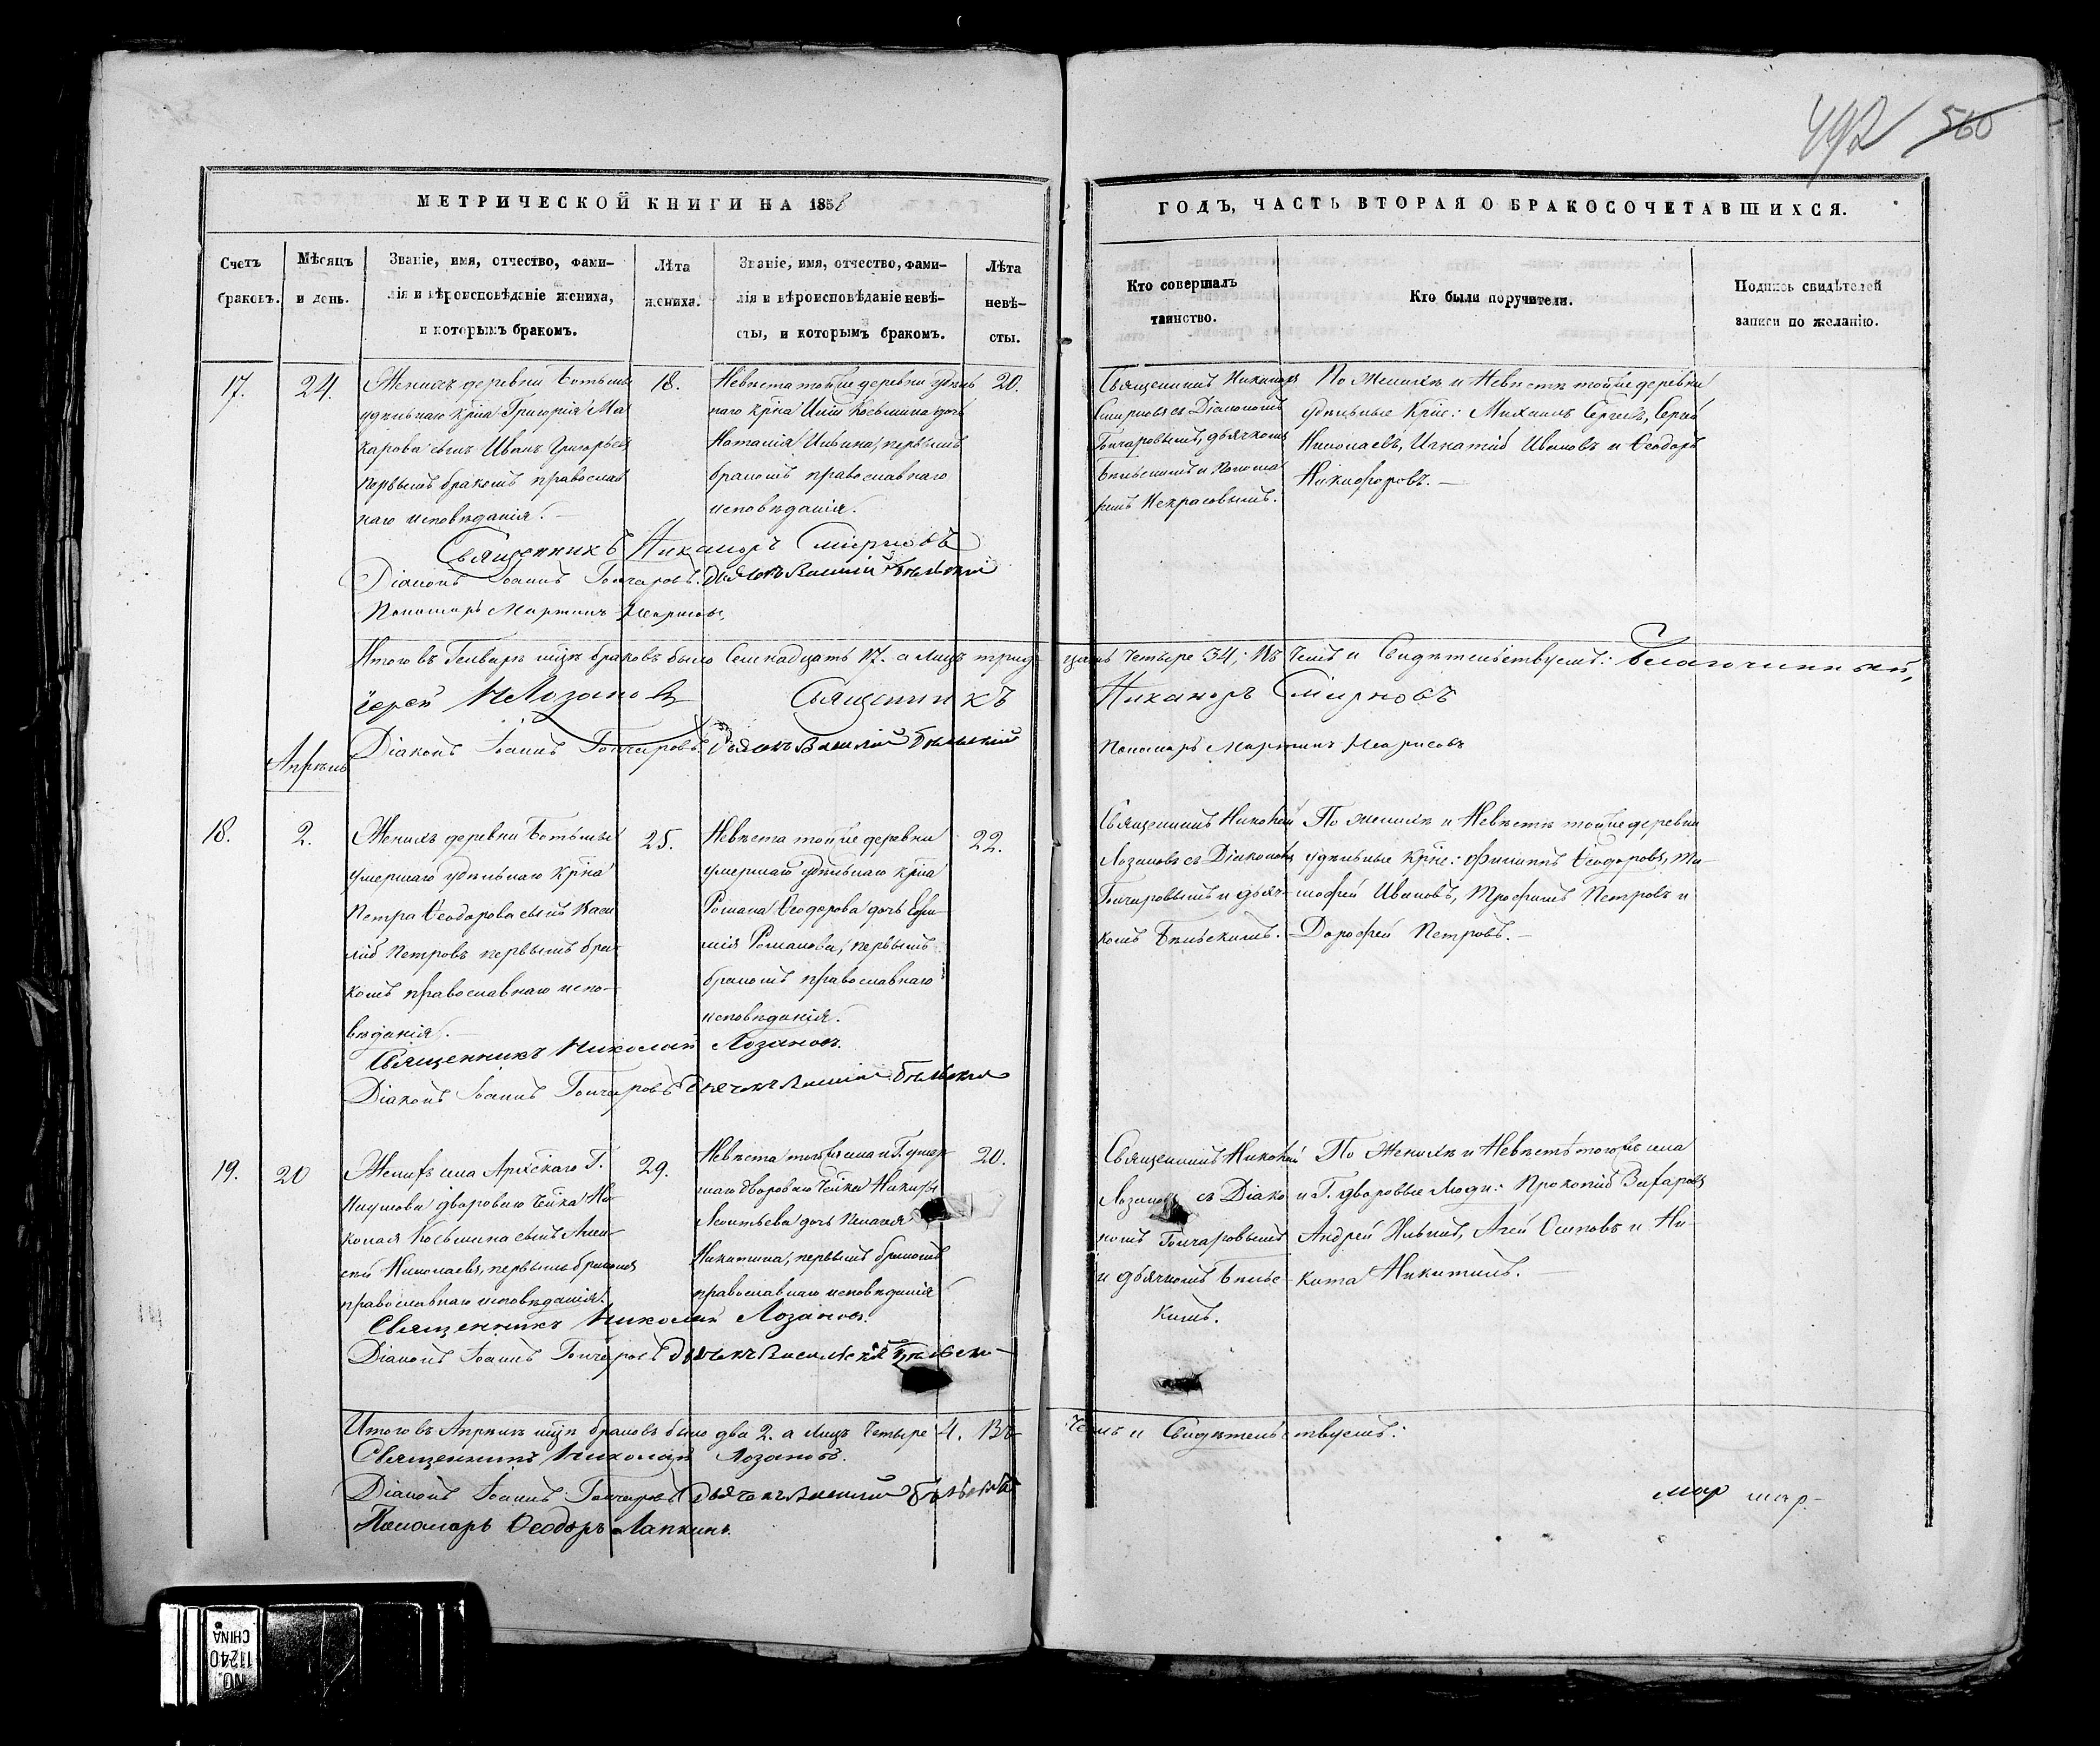 492 / 560
МЕТРИЧЕСКОЙ КНИГИ НА 1858
ГОДЪ, ЧАСТЬ ВТОРАЯ О БРАКОСОЧЕТАВШИХСЯ.
Счетъ
браковъ.
Мѣсяцъ
и день.
Званіе, имя, отчество, фами-
лія и вѣроисповѣданіе жениха,
и которымъ бракомъ.
Лѣта
жениха.
Званіе, имя, отчество, фами-
лія и вѣроисповѣданіе невѣ-
сты, и которымъ бракомъ.
Лѣта
невѣ-
сты.
Кто совершалъ
таинство.
Кто были поручители.
Подпись свидѣтелей
записи по желанію.
17.
24.
Женихъ деревни
удѣльнаго крна Григорія Ма
карова сынъ Иванъ Григорьев
первымъ бракомъ православ
наго исповѣданія.
18.
Невѣста тойже деревни удѣль
наго крна Ильи Косьмина дочь
Наталія Ильина, первымъ
бракомъ православнаго
исповѣданія.
20.
Священникъ Никаноръ
Смирновъ съ Діакономъ
Гончаровымъ, дьячкомъ
Бѣльскимъ и Понома
ремъ Некрасовымъ.
По Женихѣ и Невѣстѣ тойже деревни
удѣльные Крне: Михаилъ Сергѣевъ, Сергѣй
Николаевъ, Игнатій Ивановъ и Ѳеодоръ
Никифоровъ.
Священникъ Никаноръ Смирновъ
Діаконъ Іоаннъ Гончаровъ. Дьячекъ Василій Бѣльскій
Пономарь Мартинъ
Итого въ Генварѣ мцѣ браковъ было Семнадцать 17. а лицъ трид-
цать четыре 34; Въ чемъ и Свидѣтельствуемъ: Благочинный,
іерей Н Лозановъ Священникъ
Никаноръ Смирновъ
Діаконъ Іоаннъ Гончаровъ. Дьячекъ Василій Бѣльскій
Пономарь Мартинъ
Апрѣль
18.
2.
Женихъ деревни
умершаго удѣльнаго Крна
Петра Ѳеодорова сынъ Васи
лій Петровъ первымъ бра-
комъ православнаго испо-
вѣданія.
25.
Невѣста тойже деревни
умершаго удѣльнаго крна
Романа Ѳеодорова дочь Ефи-
мія Романова, первымъ
бракомъ православнаго
исповѣданія.
22.
Священникъ Николай
Лозановъ съ Діакономъ
Гончаровымъ и дьяч-
комъ Бѣльскимъ.
По женихѣ и Невѣстѣ тойже деревни
удѣльные Крне: Филиппъ Ѳеодоровъ, Ти-
мофей Ивановъ, Трофимъ Петровъ и
Дорофей Петровъ.
Священникъ Николай Лозановъ.
Діаконъ Іоаннъ Гончаровъ Дьячекъ Василій Бѣльскій
19.
20
Женихъ села Г.
Наумова двороваго челка Ни-
колая Косьмина сынъ Алек-
сѣй Николаевъ, первымъ бракомъ
православнаго исповѣданія.
29.
Невѣста тогожъ села и Г. умер-
шаго двороваго челка Никиты
Леонтьева дочь Пелагея
Никитина, первымъ бракомъ
православнаго исповѣданія
20.
Священникъ Николай
Лозановъ съ Діако
номъ Гончаровымъ
и дьячкомъ Бѣльс-
кимъ.
По Женихѣ и Невѣстѣ тогожъ села
и Г. дворовые люди: Прокопій Захаровъ
Андрей Ильинъ, Агей Осиповъ и Ни-
кита Никитинъ.
Священникъ Николай Лозановъ.
Діаконъ Іоаннъ Гончаровъ Дьячекъ Василій Бѣльскій
Итого въ Апрѣлѣ мцѣ браковъ было два 2. а лицъ четыре 4. Въ
чемъ и Свидѣтельствуемъ:
Священникъ Николай Лозановъ.
Діаконъ Іоаннъ Гончаровъ Дьячекъ Василій Бѣльскій
Пономарь Ѳеодоръ Лапкинъ.
мар мар-
NO.
11240
CHINA